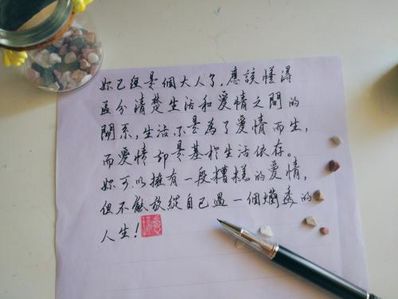 妳已經是個大人了，應該懂得
區分清楚生活和愛情之間的
關系，生活不是為了愛情而生，
而愛情卻是基於生活依存。
妳可以擁有一段糟糕的愛情，
但不能放縱自己過一個爛透的
人生！